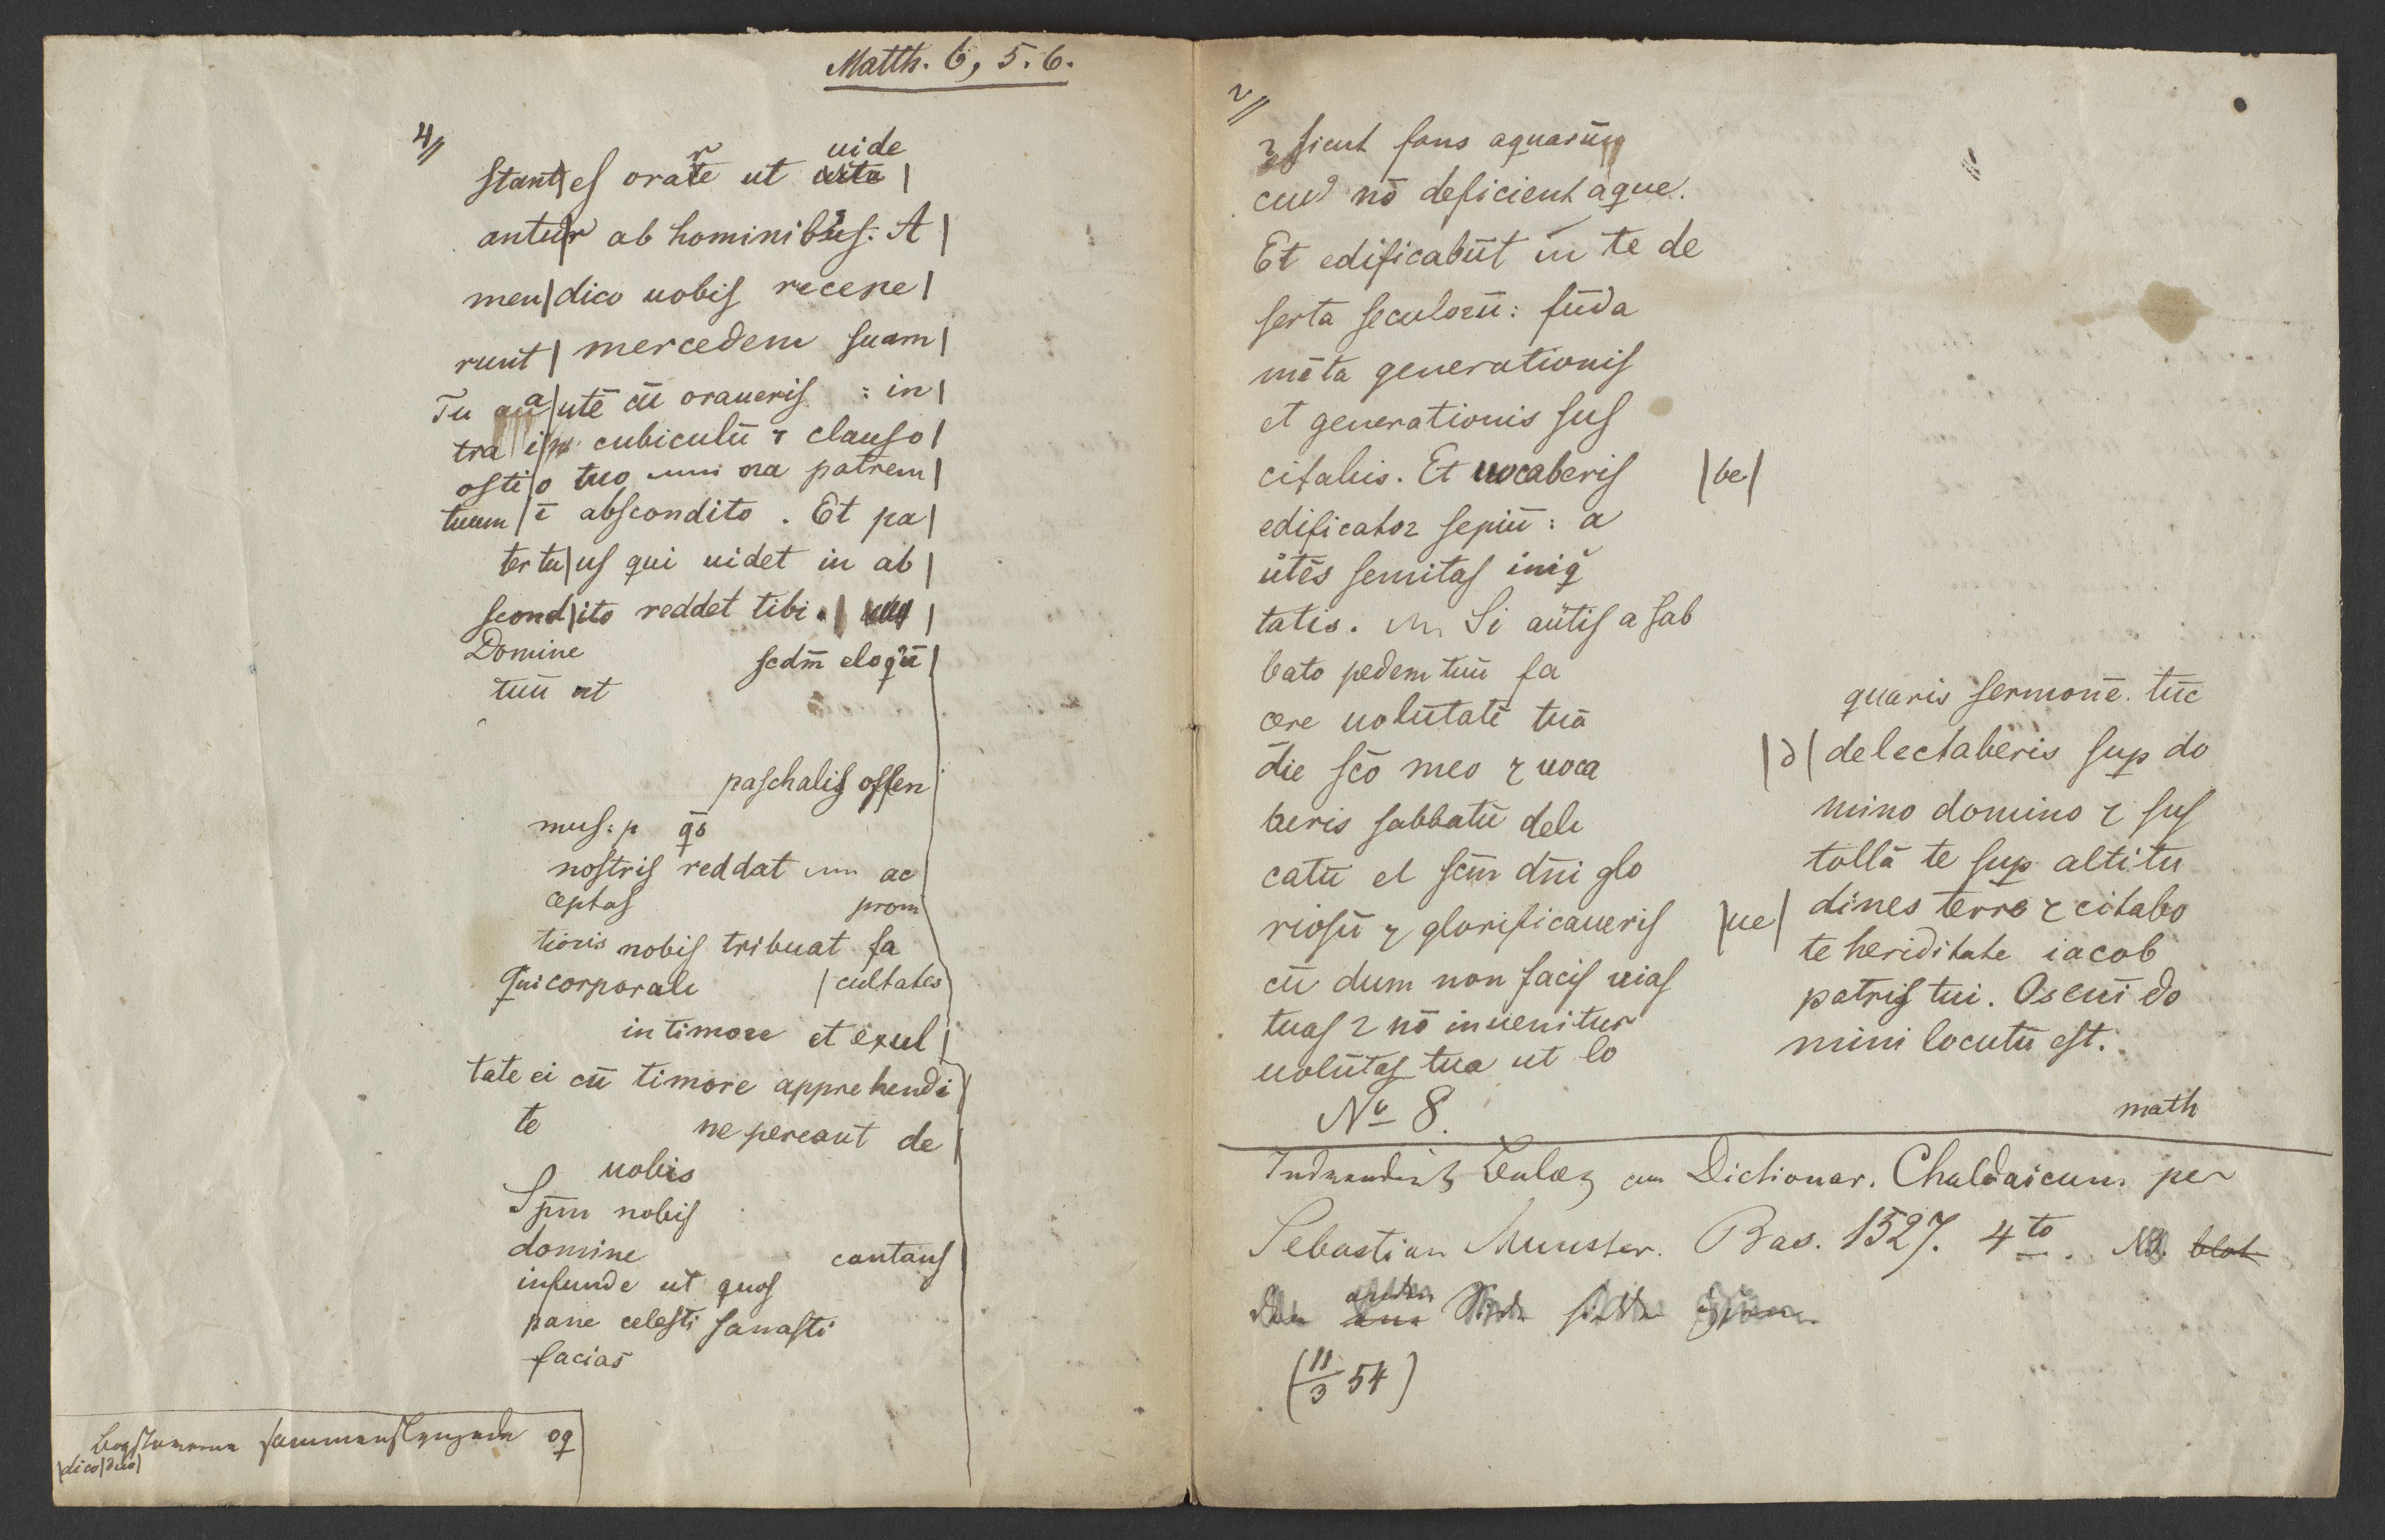 Matth. 6, 5. 6.
4//
uide
stant|es orate ut |
antu|r ab hominibus. A|
men|dico uobis recepe|
runt| mercedem suam|
Tu a|utē cū oraueris : in|
tra i|n cubiculū ⁊ clauso|
osti|o tuo ora patrem|
tuum|ī abscondito . Et pa|
ter tu|us qui uidet in ab|
scond|ito reddet tibi. |
Domine scdm̄ eloqū|
tuū ut
paschalis offen
mus: p qs
nostris reddat ac
ceptas prom
tionis nobis tribuat fa
Qui corporali |cultates
in timore et exul|
tate ei cū timore apprehendi
te ne pereant de|
uobis
Spm nobis
domine cantans
infunde ut quos
pane celesti sanasti
facias
bogstavarna sammanslyngade
|dico|duo|
2//
⁊ sicut fons aquarūm
cui⁹ nō deficient aque.
Et edificabūt in te de
serta seculoꝛū: fūda
mēta generationis
et generationis sus
citabis. Et uocaberis |be|
edificatoꝛ sepiū: a
ūtēs semitas iniq
tatis. Si aūtis a sab
bato pedem tuū fa
cere uolūtatē tuā
die scō meo ⁊ uoca
beris sabbatū deli
catū et scm dn̄i glo
riosū ⁊ glorificaueris |ue|
cū dum non facis uias
tuas ⁊ nō inuenitur
uolūtas tua ut lo
quaris sermonē. tūc
|d| delectaberis sup do
mino domino ⁊ sus
tollā te sup altitu
dines terre ⁊ citabo
te heriditate iacob
patris tui. Os enī do
mini locutū est.
math
No 8.
Dictionar. Chaldaicum per
Sebastian Munster. Bas. 1527. 4to. NB. blot
den andra
(11/3 54)